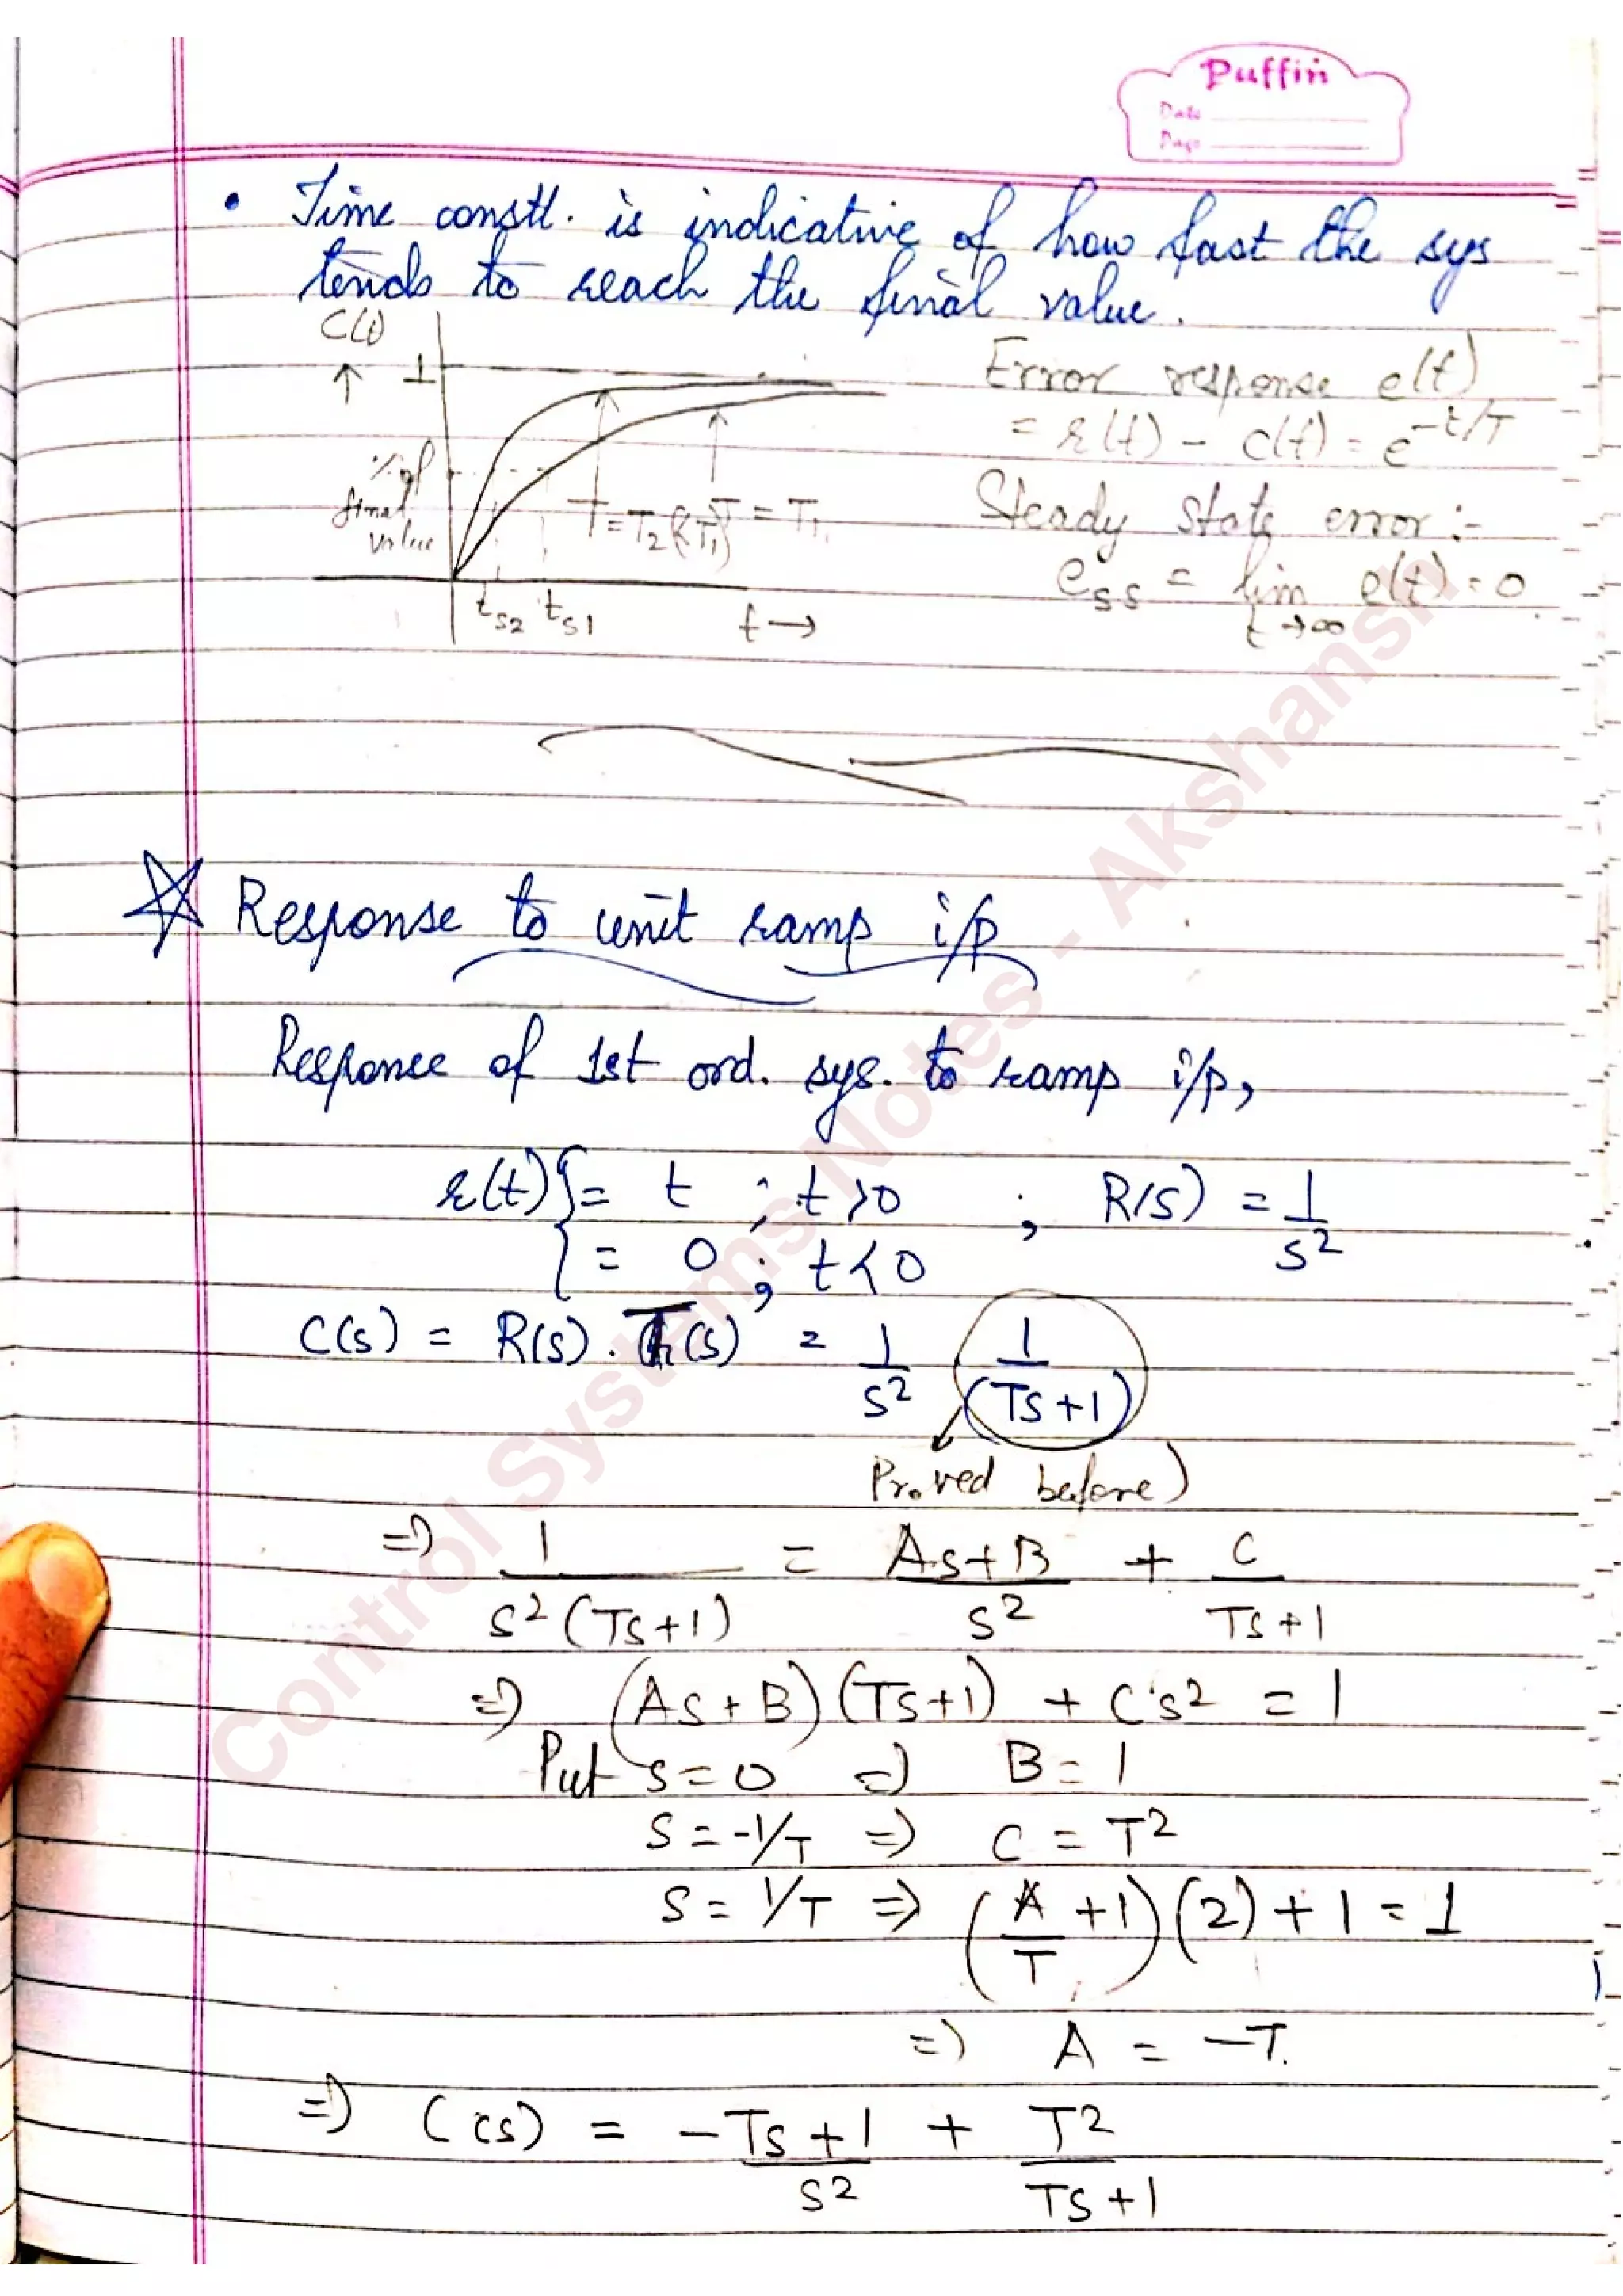 Puffin
Date
Page
• Time constt. is indicative of how fast the sys
tends to reach the final value.
C(t)
↑ 1
% of
final
value
T = T2 (<T1) T = T1
ts2 ts1 t →
Error response e(t)
= r(t) - c(t) = e^-t/T
Steady state error :-
ess = lim e(t) = 0
t → ∞
☆ Response to unit ramp i/p
Response of 1st ord. sys. to ramp i/p,
r(t) { = t ; t > 0 ; R(s) = 1/s²
{ = 0 ; t < 0
C(s) = R(s) . T(s) = 1/s² 1/(Ts+1)
Proved before)
⇒ 1/s²(Ts+1) = As+B/s² + C/Ts+1
⇒ (As+B)(Ts+1) + Cs² = 1
Put s=0 ⇒ B = 1
s = -1/T ⇒ C = T²
s = 1/T ⇒ (A/T + 1)(2) + 1 = 1
⇒ A = -T.
⇒ C(s) = -Ts+1/s² + T²/Ts+1
Control Systems Notes - Akshansh